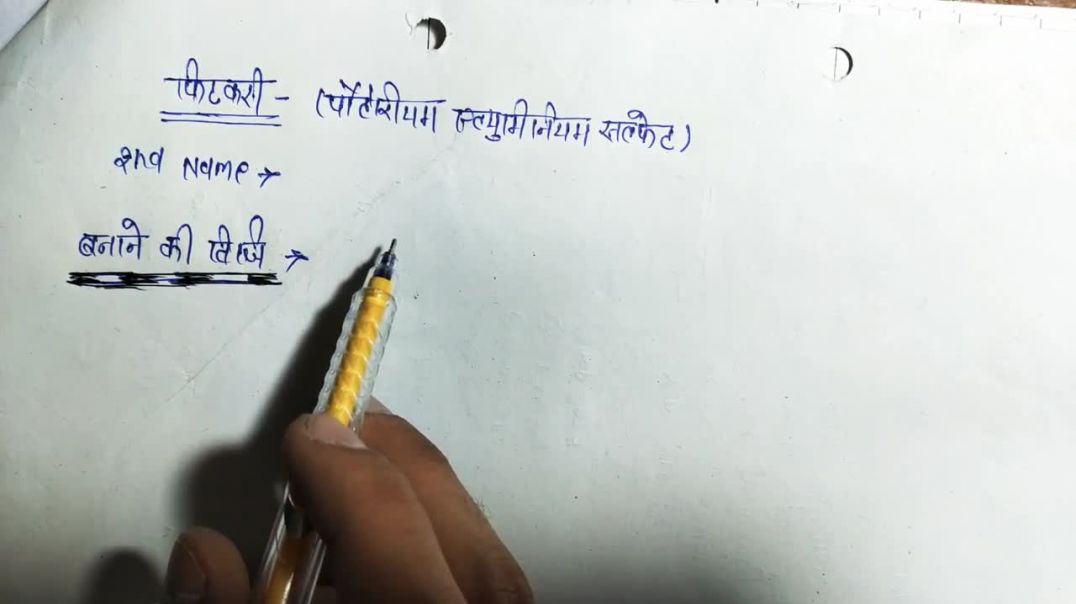 फिटकरी - (पोटेशीयम एल्युमीनियम सल्फेट)
2nd Name →
बनाने की विधि →